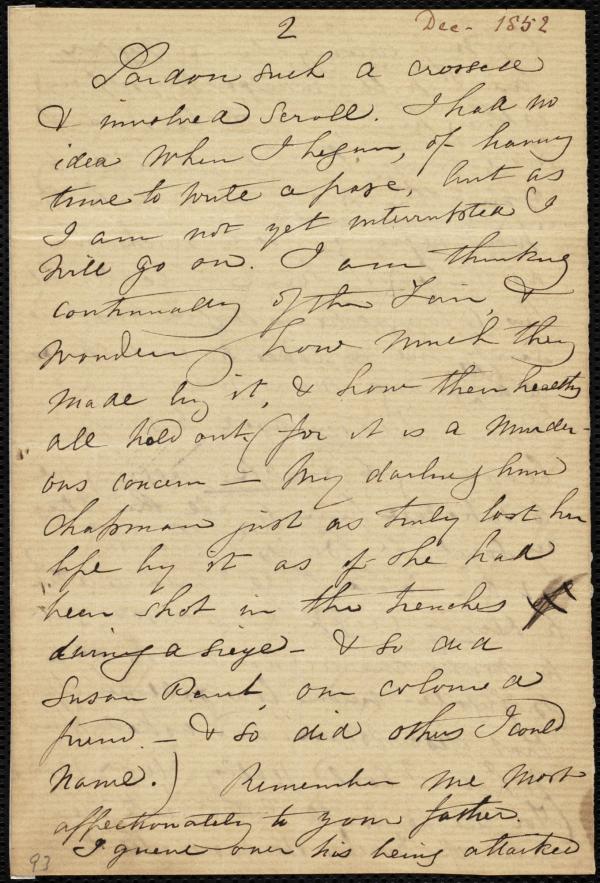 2
Dec- 1852
Pardon such a crossed
& involved scroll. I had no
idea when I begun, of having
time to write a page, but as
I am not yet interrupted I
will go on. I am thinking
continually of the Fair, &
wondering how much they
made by it, & how their healths
all hold out (for it is a murder-
ous concern — My darling Ann
Chapman just as truly lost her
life by it as if she had
been shot in the trenches
during a siege — & so did
Susan Paul, our colored
friend — & so did others I could
name.) Remember me most
affectionately to your father.
I grieve over his being attacked
93